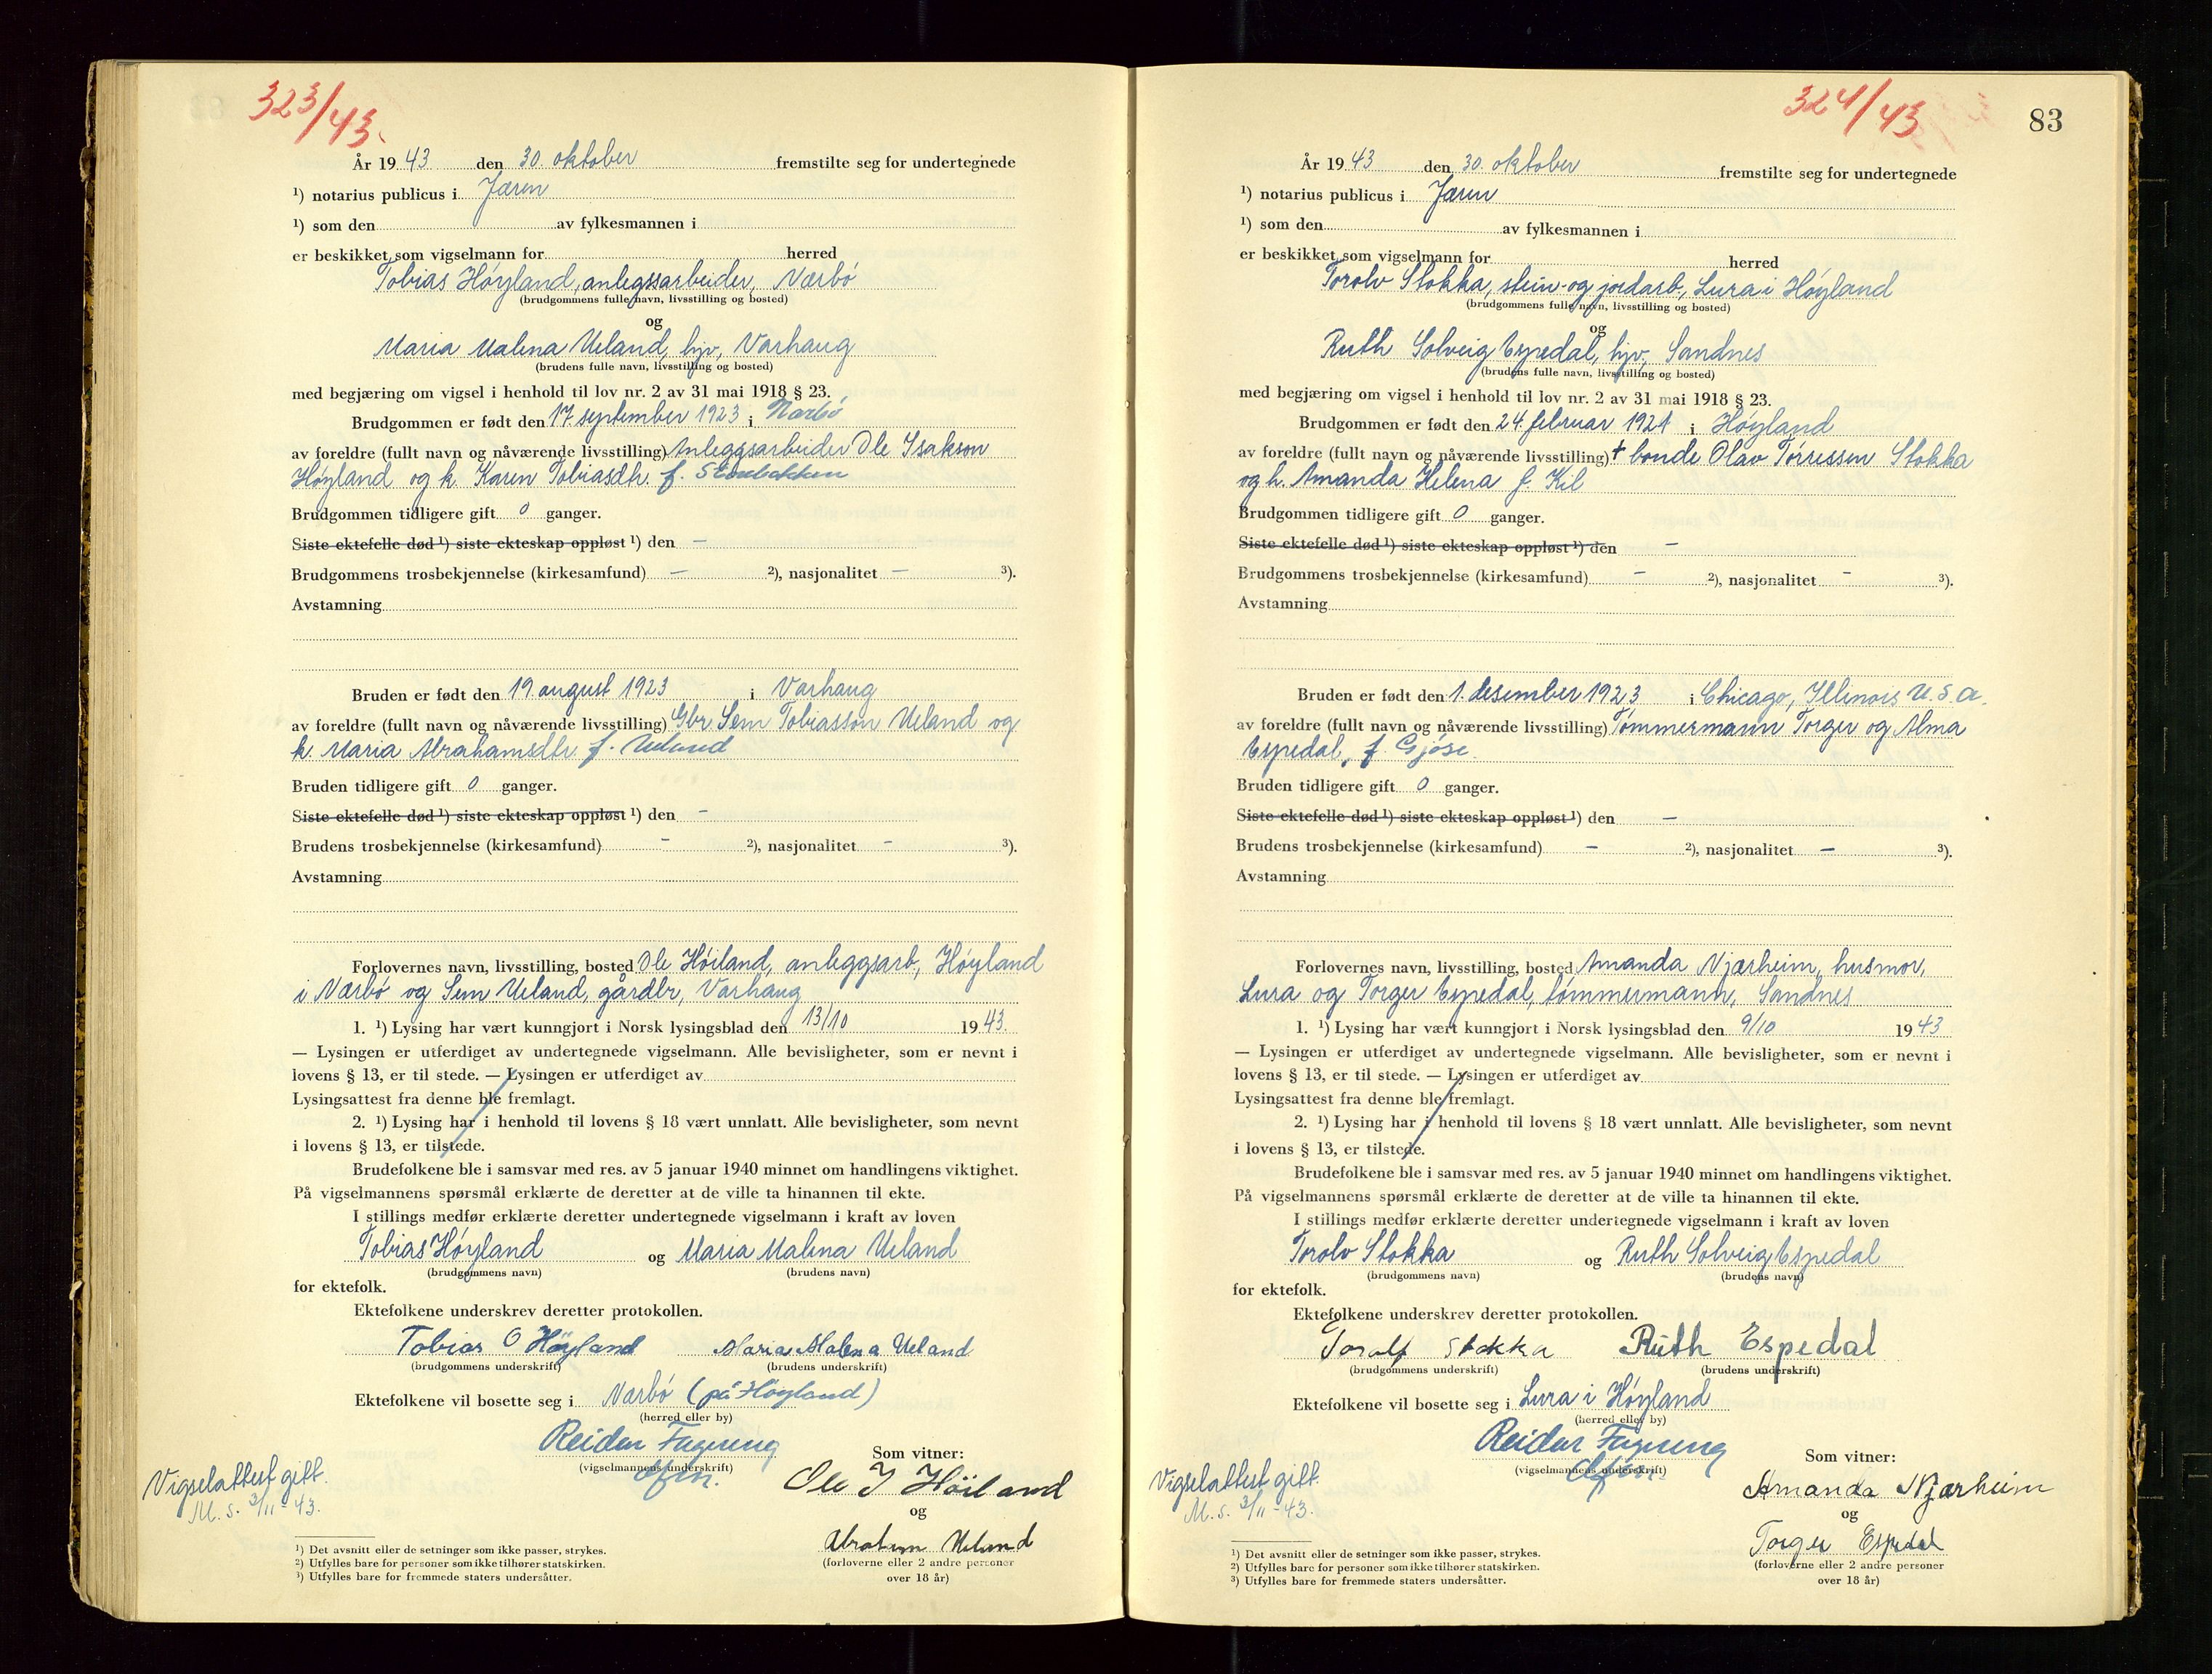 323/43.
År 1943 den 30. oktober fremstilte seg for undertegnede
¹) notarius publicus i Jæren
¹) som den av fylkesmannen i
er beskikket som vigselmann for herred
Tobias Høyland, anlegssarbeider, Nærbø
(brudgommens fulle navn, livsstilling og bosted)
og
Maria Malena Ueland, hjv, Varhaug
(brudens fulle navn, livsstilling og bosted)
med begjæring om vigsel i henhold til lov nr. 2 av 31 mai 1918 § 23.
Brudgommen er født den 17. september 1923 i Nærbø
av foreldre (fullt navn og nåværende livsstilling) Anleggsarbeider Ole Isakson
Høyland og k. Karen Tobiasdtr. f.
Brudgommen tidligere gift 0 ganger.
Siste ektefelle død ¹) siste ekteskap oppløst ¹) den –
Brudgommens trosbekjennelse (kirkesamfund) – ²), nasjonalitet – ³).
Avstamning
Bruden er født den 19. august 1923 i Varhaug
av foreldre (fullt navn og nåværende livsstilling) Gbr Sem Tobiasson Ueland og
k. Maria Abrahamsdtr. f. Ueland
Bruden tidligere gift 0 ganger.
Siste ektefelle død ¹) siste ekteskap oppløst ¹) den –
Brudens trosbekjennelse (kirkesamfund) – ²), nasjonalitet – ³).
Avstamning
Forlovernes navn, livsstilling, bosted Ole Høiland, anleggsarb, Høyland
i Nærbø og Sem Ueland, gårdbr, Varhaug
1. ¹) Lysing har vært kunngjort i Norsk lysingsblad den 13/10 1943.
— Lysingen er utferdiget av undertegnede vigselmann. Alle bevisligheter, som er nevnt i
lovens § 13, er til stede. — Lysingen er utferdiget av
Lysingsattest fra denne ble fremlagt.
2. ¹) Lysing har i henhold til lovens § 18 vært unnlatt. Alle bevisligheter, som nevnt
i lovens § 13, er tilstede.
Brudefolkene ble i samsvar med res. av 5 januar 1940 minnet om handlingens viktighet.
På vigselmannens spørsmål erklærte de deretter at de ville ta hinannen til ekte.
I stillings medfør erklærte deretter undertegnede vigselmann i kraft av loven
Tobias Høyland og Maria Malena Ueland
(brudgommens navn) (brudens navn)
for ektefolk.
Ektefolkene underskrev deretter protokollen.
Tobias O Høyland Maria Malena Ueland
(brudgommens underskrift) (brudens underskrift)
Ektefolkene vil bosette seg i Nærbø (på Høyland)
(herred eller by)
Reidar Fagereng
(vigselmannens underskrift)
Som vitner:
Ole I Höiland
og
Abraham Ueland
(forloverne eller 2 andre personer
over 18 år)
Vigselattest gitt.
M. S. 3/11-43.
¹) Det avsnitt eller de setninger som ikke passer, strykes.
²) Utfylles bare for personer som ikke tilhører statskirken.
³) Utfylles bare for fremmede staters undersåtter.
324/43
83
År 1943 den 30. oktober fremstilte seg for undertegnede
¹) notarius publicus i Jæren
¹) som den av fylkesmannen i
er beskikket som vigselmann for herred
Torolv Stokka, stein- og jordarb., Lura i Høyland
(brudgommens fulle navn, livsstilling og bosted)
og
Ruth Solveig Espedal, hjv., Sandnes
(brudens fulle navn, livsstilling og bosted)
med begjæring om vigsel i henhold til lov nr. 2 av 31 mai 1918 § 23.
Brudgommen er født den 24. februar 1921 i Høyland
av foreldre (fullt navn og nåværende livsstilling) † bonde Olav Tørressen Stokka
og h. Amanda Helena f. Kil
Brudgommen tidligere gift 0 ganger.
Siste ektefelle død ¹) siste ekteskap oppløst ¹) den –
Brudgommens trosbekjennelse (kirkesamfund) – ²), nasjonalitet – ³).
Avstamning
Bruden er født den 1. desember 1923 i Chicago, Illinois U.S.a.
av foreldre (fullt navn og nåværende livsstilling) Tømmermann Torger og Alma
Espedal, f. Gjøse.
Bruden tidligere gift 0 ganger.
Siste ektefelle død ¹) siste ekteskap oppløst ¹) den –
Brudens trosbekjennelse (kirkesamfund) – ²), nasjonalitet – ³).
Avstamning
Forlovernes navn, livsstilling, bosted Amanda Njærheim, husmor,
Lura og Torger Espedal, tømmermann, Sandnes
1. ¹) Lysing har vært kunngjort i Norsk lysingsblad den 9/10 1943
— Lysingen er utferdiget av undertegnede vigselmann. Alle bevisligheter, som er nevnt i
lovens § 13, er til stede. — Lysingen er utferdiget av
Lysingsattest fra denne ble fremlagt.
2. ¹) Lysing har i henhold til lovens § 18 vært unnlatt. Alle bevisligheter, som nevnt
i lovens § 13, er tilstede.
Brudefolkene ble i samsvar med res. av 5 januar 1940 minnet om handlingens viktighet.
På vigselmannens spørsmål erklærte de deretter at de ville ta hinannen til ekte.
I stillings medfør erklærte deretter undertegnede vigselmann i kraft av loven
Torolv Stokka og Ruth Solveig Espedal
(brudgommens navn) (brudens navn)
for ektefolk.
Ektefolkene underskrev deretter protokollen.
Toralf Stokka Ruth Espedal
(brudgommens underskrift) (brudens underskrift)
Ektefolkene vil bosette seg i Lura i Høyland
(herred eller by)
Reidar Fagereng
(vigselmannens underskrift)
Som vitner:
Amanda Njærheim
og
Torger Espedal
(forloverne eller 2 andre personer
over 18 år)
Vigselattest gitt.
M. S. 3/11-43.
¹) Det avsnitt eller de setninger som ikke passer, strykes.
²) Utfylles bare for personer som ikke tilhører statskirken.
³) Utfylles bare for fremmede staters undersåtter.